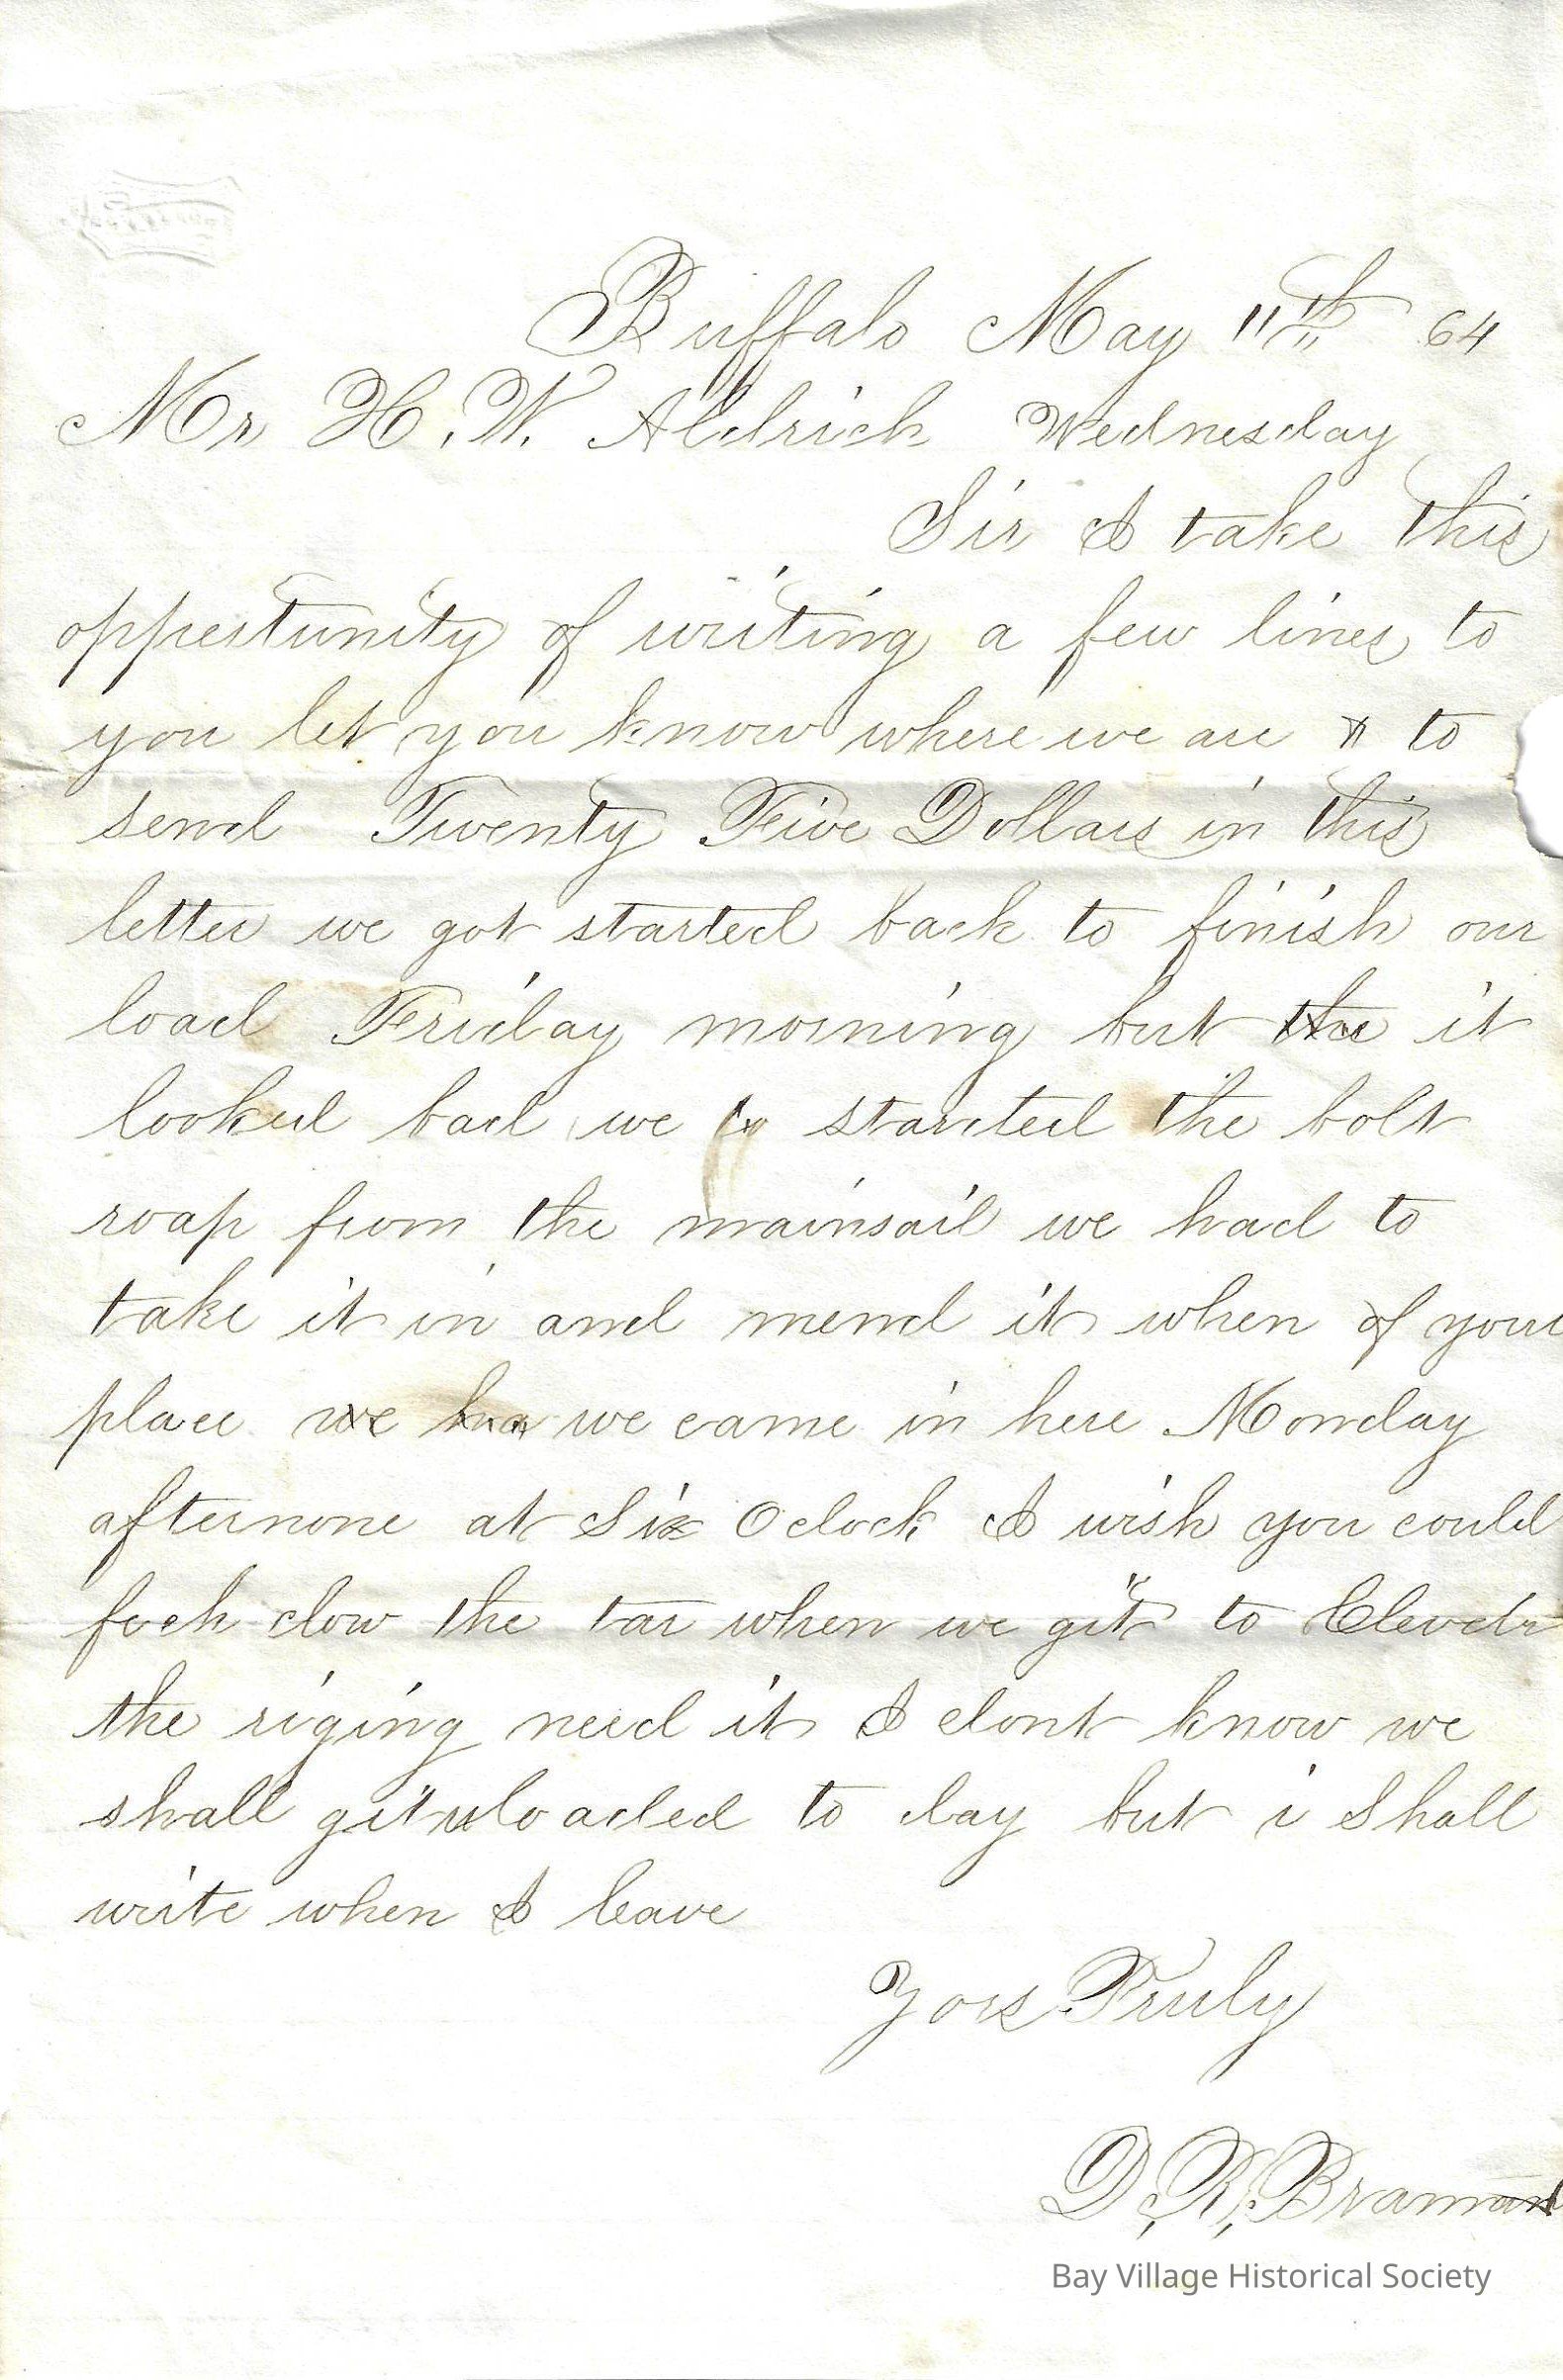 Buffalo May 11th 64
Mr H. W. Aldrich Wednesday
Sir I take this
oppertunity of writing a few lines to
you let you know where we are & to
send Twenty Five Dollars in this
letter we got started back to finish our
load Friday morning but the it
looked bad we to starcted the bolt
roap from the mainsail we had to
take it in and mend it when of your
place we ha we came in here Monday
afternone at Six Oclock I wish you could
fech dow the tar when we git to Clevdn
the riging need it I dont know we
shall git uloaded to day but i Shall
write when I leave
Yors Truly
D. R. Braman
Bay Village Historical Society